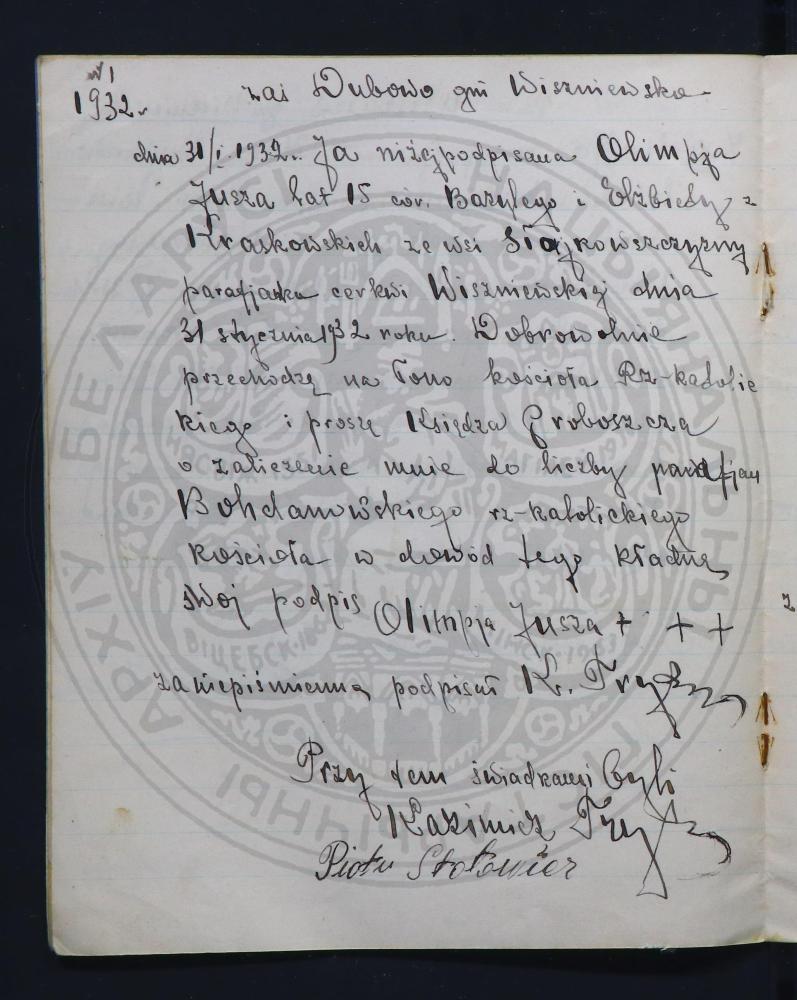 № 1
1932.
zaś Dubowo gm Wiszniewska
dnia 31/I. 1932. Ja niżejpodpisana Olimpja
Jusza lat 15 cór. Bazylego i Elżbiety z
Kraskowskich ze wsi Siajkowszczyzny
parafjanka cerkwi Wiszniewskiej dnia
31 stycznia 1932 roku. Dobrowolnie
przechodzę na łono kościoła Rz-katolic
kiego i proszę Księdza Proboszcza
o zaliczenie mnie do liczby parafjan
Bohdanowskiego rz-katolickiego
kościoła w dowód tego kładnę
swój podpis Olimpja Jusza + + +
za niepiśmienną podpisał K.
Przy tem świadkami byli
Kazimierz
Piotr
БЕЛАРУСІ
НАЦЫЯНАЛЬНЫ
АРХІЎ
ВІЦЕБСК